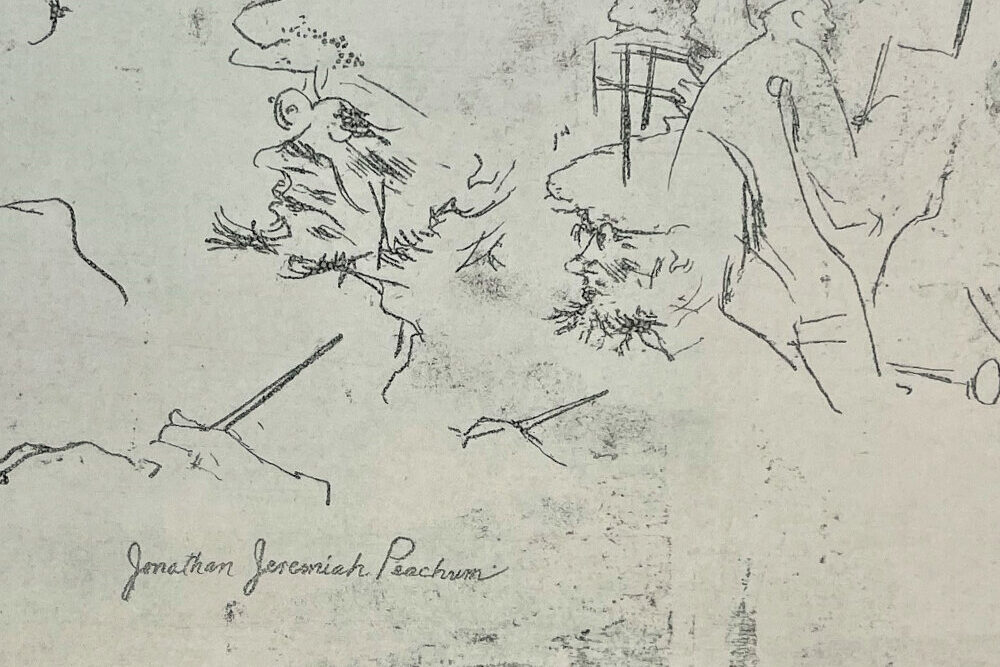 Jonathan Jeremiah Peachum